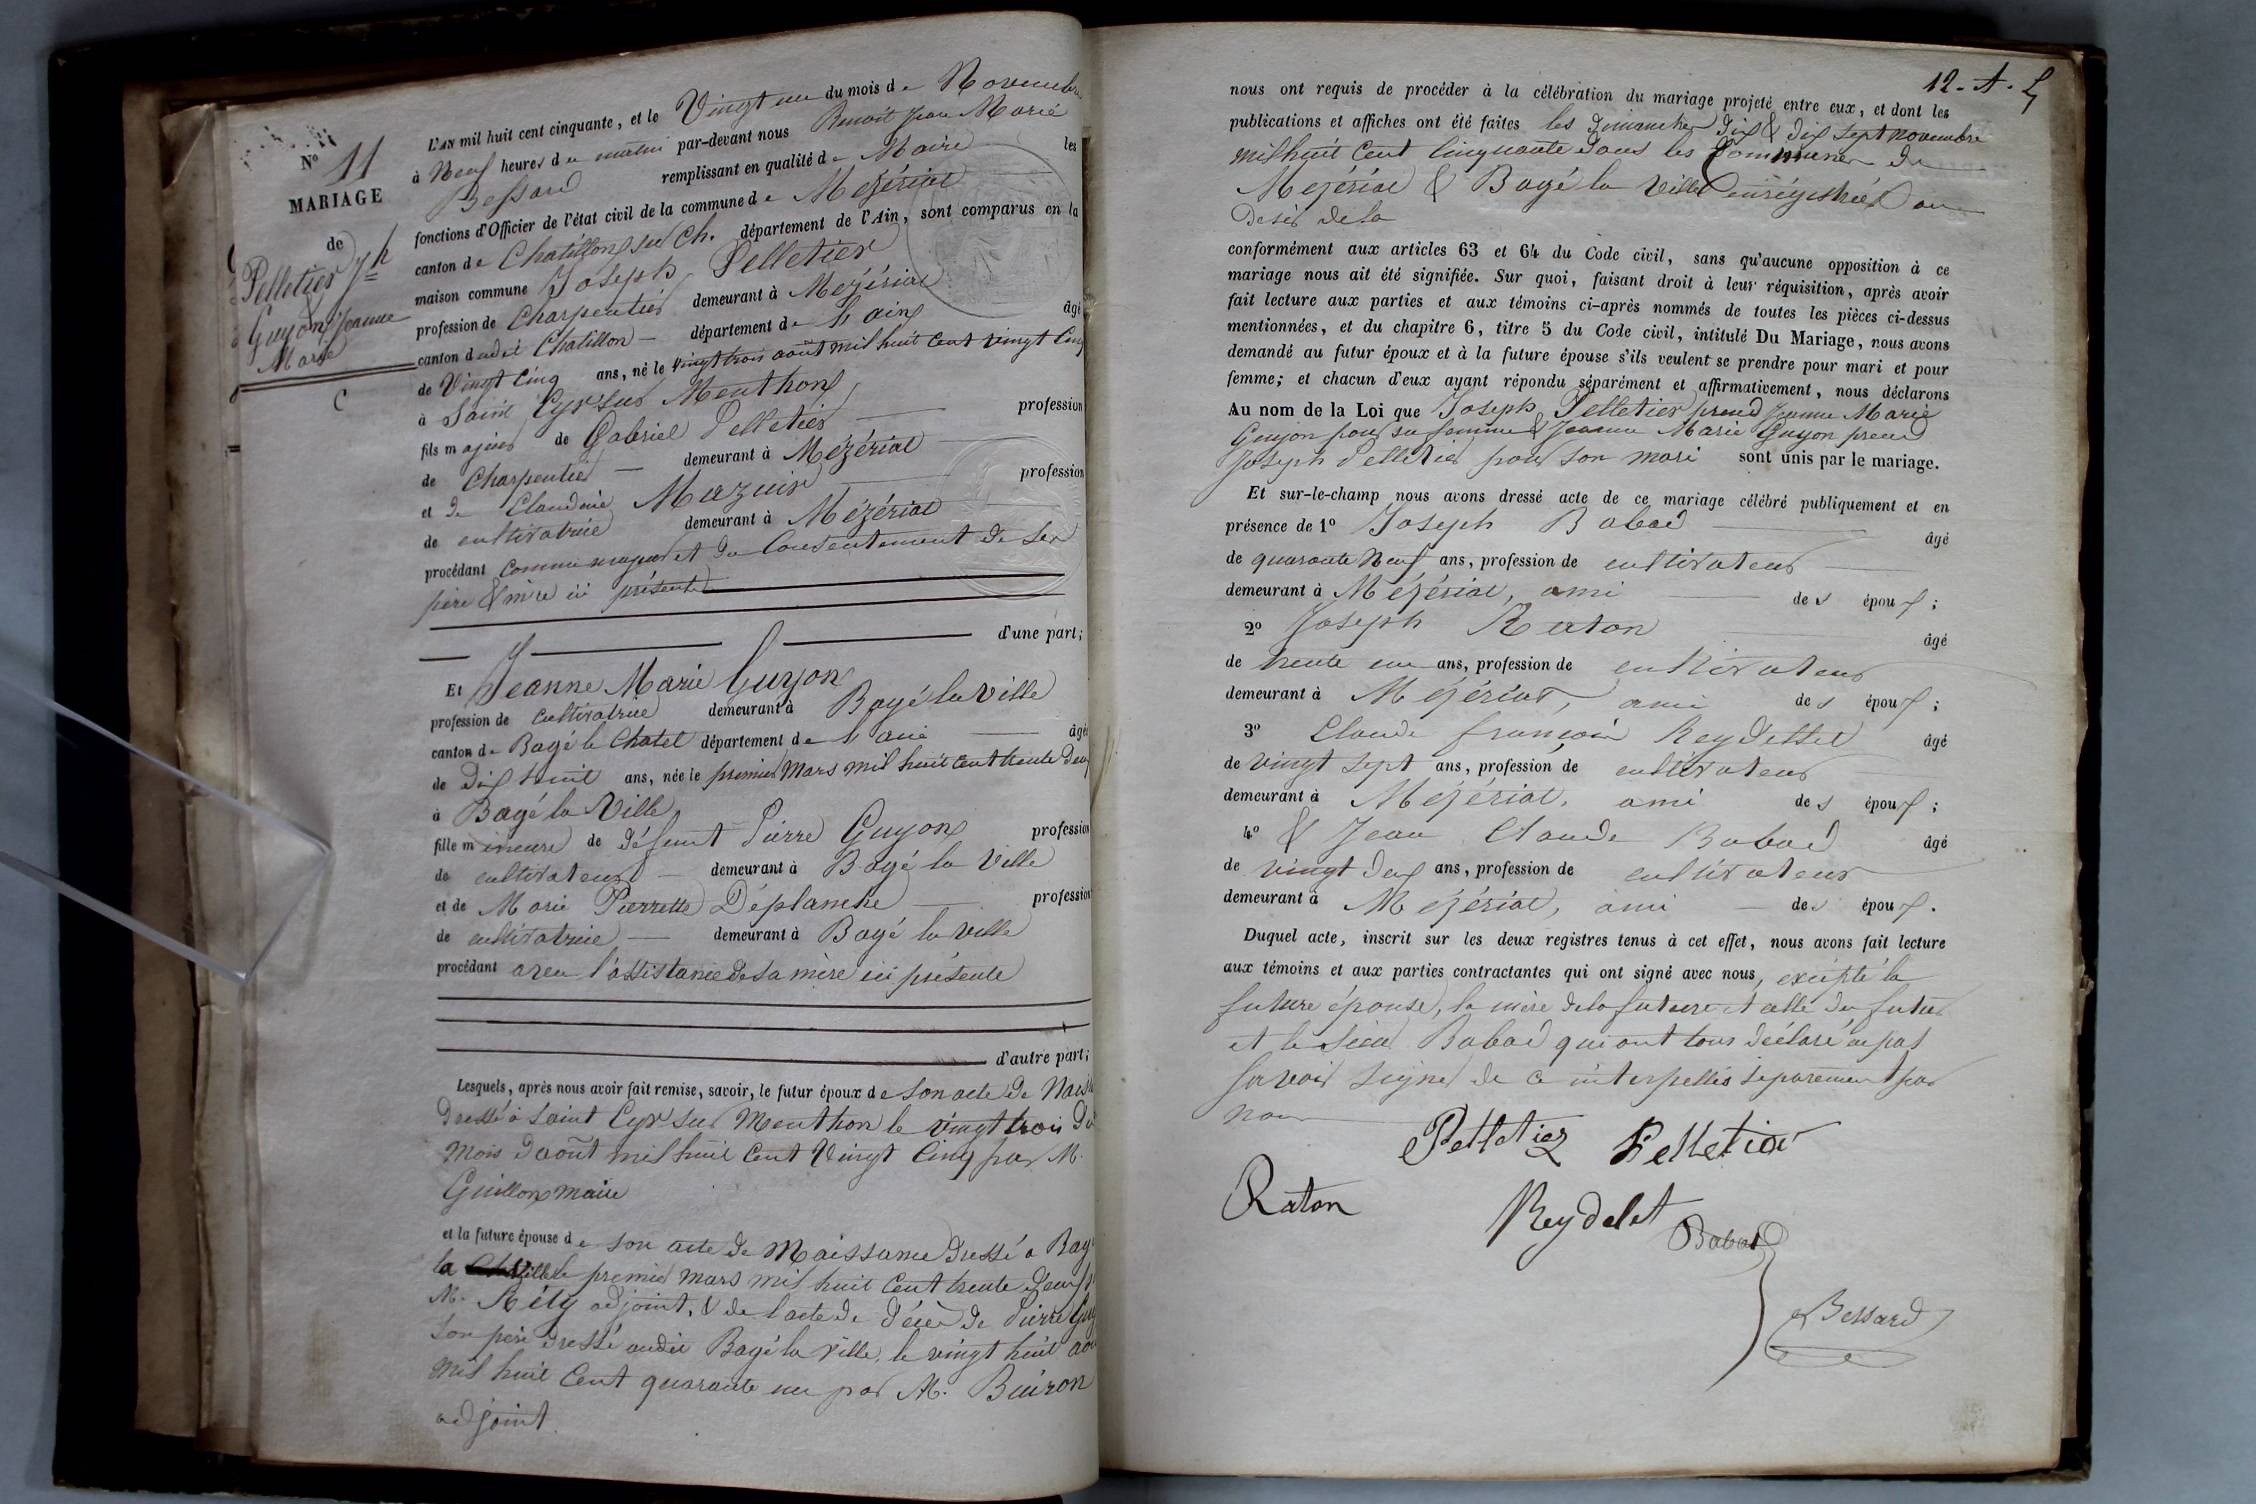 N° 11
MARIAGE
de
Pelletier Jh
&
Guyon Jeanne
Marie
L'AN mil huit cent cinquante, et le Vingt un du mois de Novembre
à Neuf heures du matin par-devant nous Benoit Jean Marie
Bessard remplissant en qualité de Maire les
fonctions d'Officier de l'état civil de la commune de Mézériat
canton de Chatillon sur Ch. département de l'Ain, sont comparus en la
maison commune Joseph Pelletier
profession de Charpentier demeurant à Mézériat
canton dudit Chatillon département de l'ain âgé
de Vingt Cinq ans, né le vingt trois août mil huit cent vingt Cinq
à Saint Cyr sur Menthon
fils majeur de Gabriel Pelletier profession
de Charpentier demeurant à Mézériat
et de Claudine Mazuir profession
de cultivatrice demeurant à Mézériat
procédant comme majeur et du Consentement de ses
père & mère ici présents
d'une part;
Et Jeanne Marie Guyon
profession de cultivatrice demeurant à Bagé la Ville
canton de Bagé le Chatel département de l'ain âgée
de Dix huit ans, née le premier Mars mil huit cent trente deux
à Bagé la Ville
fille mineure de défunt Pierre Guyon profession
de cultivateur demeurant à Bagé la Ville
et de Marie Pierrette Déplanche profession
de cultivatrice demeurant à Bagé la Ville
procédant avec l'assistance de sa mère ici présente
d'autre part;
Lesquels, après nous avoir fait remise, savoir, le futur époux de son acte de Nais
dressé à Saint Cyr sur Menthon le vingt trois du
mois d'août mil huit Cent Vingt Cinq par M.
Guillon maire
et la future épouse de son acte de Naissance dressé à Bagé
la Ville le premier Mars mil huit Cent trente deux
M. Réty adjoint, & de l'acte de décès de Pierre Guy
son père dressé audit Bagé la ville, le vingt huit aou
mil huit Cent quarante un par M. Buiron
adjoint.
12. A. L
nous ont requis de procéder à la célébration du mariage projeté entre eux, et dont les
publications et affiches ont été faites les dimanches dix & dix sept novembre
mil huit Cent Cinquante dans les Communes de
Mézériat & Bagé la Ville enregistrées au
desir de la
conformément aux articles 63 et 64 du Code civil, sans qu'aucune opposition à ce
mariage nous ait été signifiée. Sur quoi, faisant droit à leur réquisition, après avoir
fait lecture aux parties et aux témoins ci-après nommés de toutes les pièces ci-dessus
mentionnées, et du chapitre 6, titre 5 du Code civil, intitulé Du Mariage, nous avons
demandé au futur époux et à la future épouse s'ils veulent se prendre pour mari et pour
femme; et chacun d'eux ayant répondu séparément et affirmativement, nous déclarons
Au nom de la Loi que Joseph Pelletier prend Jeanne Marie
Guyon pour sa femme & Jeanne Marie Guyon prend
Joseph Pelletier pour son mari sont unis par le mariage.
Et sur-le-champ nous avons dressé acte de ce mariage célébré publiquement et en
présence de 1° Joseph Babad âgé
de quarante Neuf ans, profession de cultivateur
demeurant à Mézériat, ami des époux;
2° Joseph Raton âgé
de trente un ans, profession de cultivateur
demeurant à Mézériat, ami des époux;
3° Claude françois Reydellet âgé
de vingt sept ans, profession de cultivateur
demeurant à Mézériat, ami des époux;
4° & Jean Claude Babad âgé
de vingt deux ans, profession de cultivateur
demeurant à Mézériat, ami des époux.
Duquel acte, inscrit sur les deux registres tenus à cet effet, nous avons fait lecture
aux témoins et aux parties contractantes qui ont signé avec nous, excepté la
future épouse, la mère de la future et celle du futur
et le sieur Babad qui ont tous déclaré ne pas
savoir signer de ce interpellés séparément par
nous
Pelletier Pelletier
Raton Reydelet Babad
Bessard